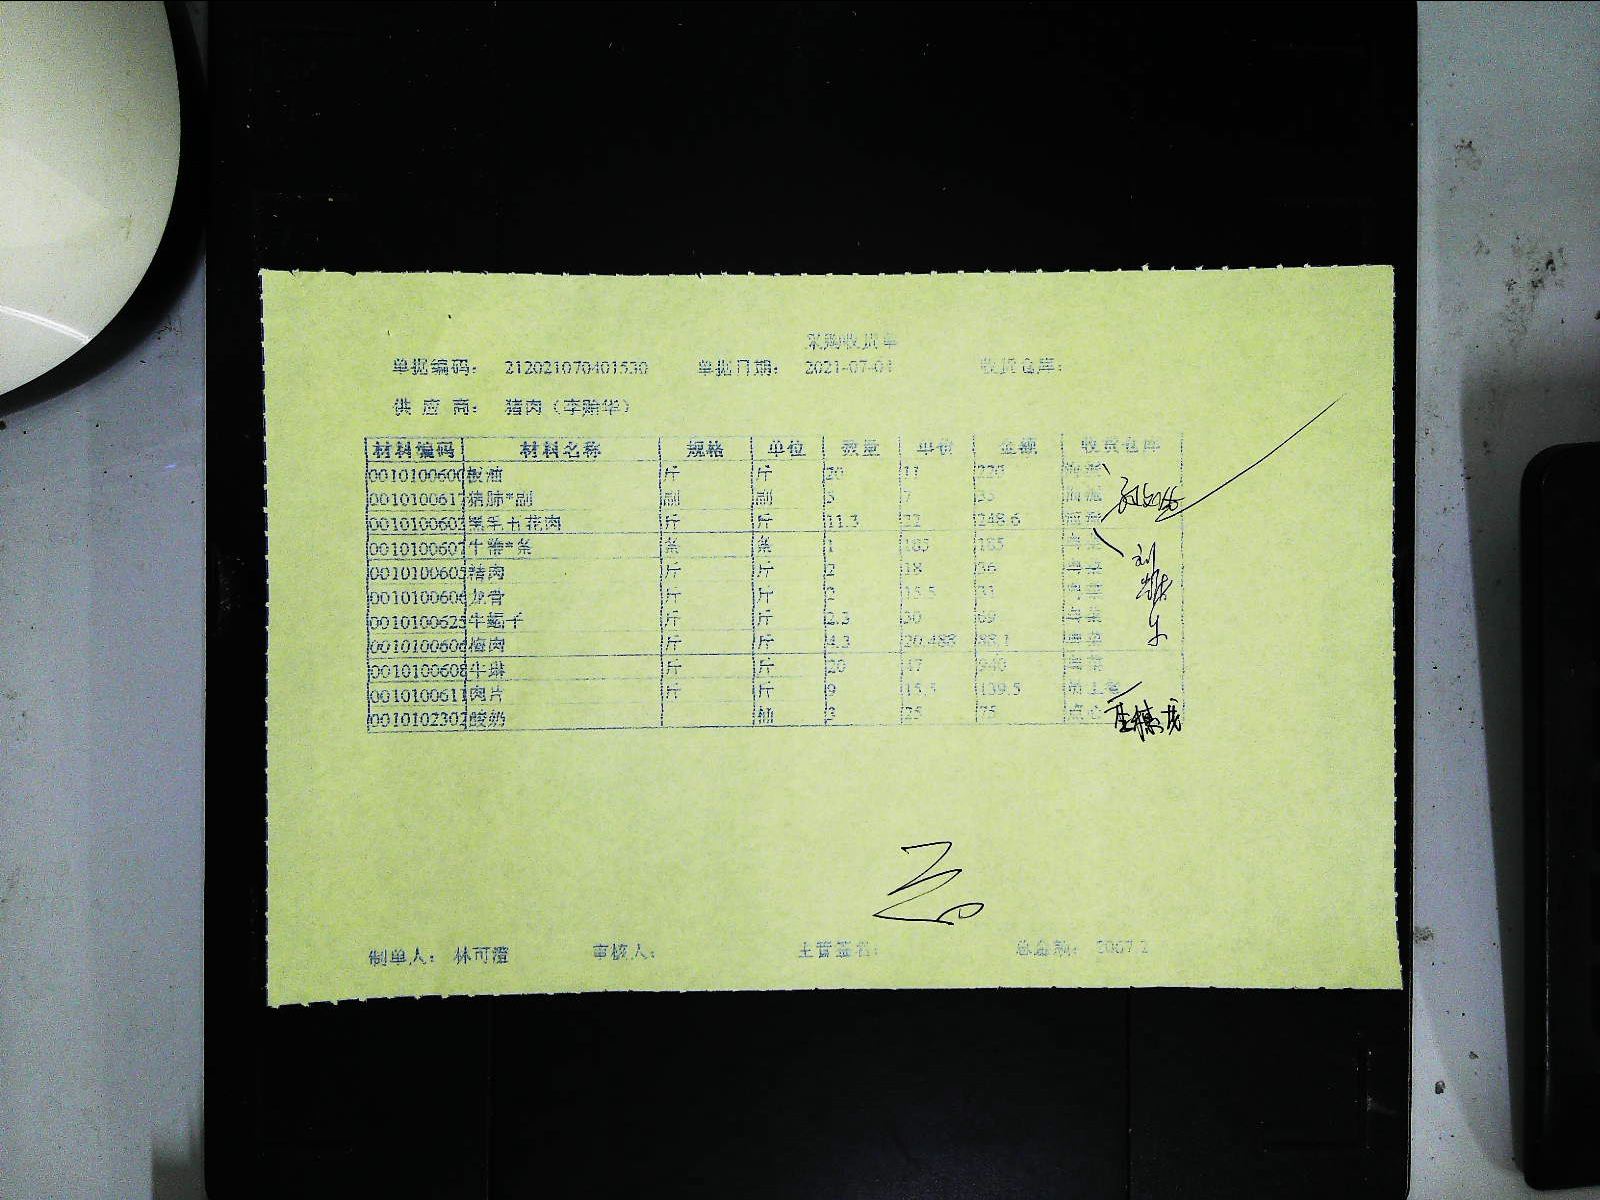 采购收货单
单据编码： 212021070401530 单据日期： 2021-07-04 收货仓库：
供 应 商： 猪肉（李贻华）
材料编码 材料名称 规格 单位 数量 单价 金额 收货仓库
0010100600 板油 斤 斤 20 11 220
0010100617 猪肺*副 副 副 5 7 35
0010100603 黑毛五花肉 斤 斤 11.3 22 248.6
0010100607 牛 *条 条 条 1 185 185 粤菜
0010100605 精肉 斤 斤 2 18 36 粤菜
0010100606 龙骨 斤 斤 2 15.5 31 粤菜
0010100625 牛 子 斤 斤 2.3 30 69 粤菜
0010100606 梅肉 斤 斤 4.3 20.488 88.1 粤菜
0010100608 牛琳 斤 斤 20 47 940
0010100611 肉片 斤 斤 9 15.5 139.5 员工餐
0010102302 酸奶 桶 3 25 75 点心
制单人： 林可澄 审核人： 主管签名： 总金额： 2067.2